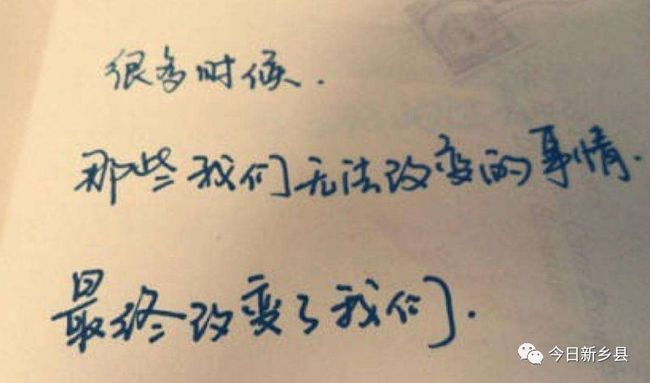 很多时候.
那些我们无法改变的事情.
最终改变了我们.
今日新乡县